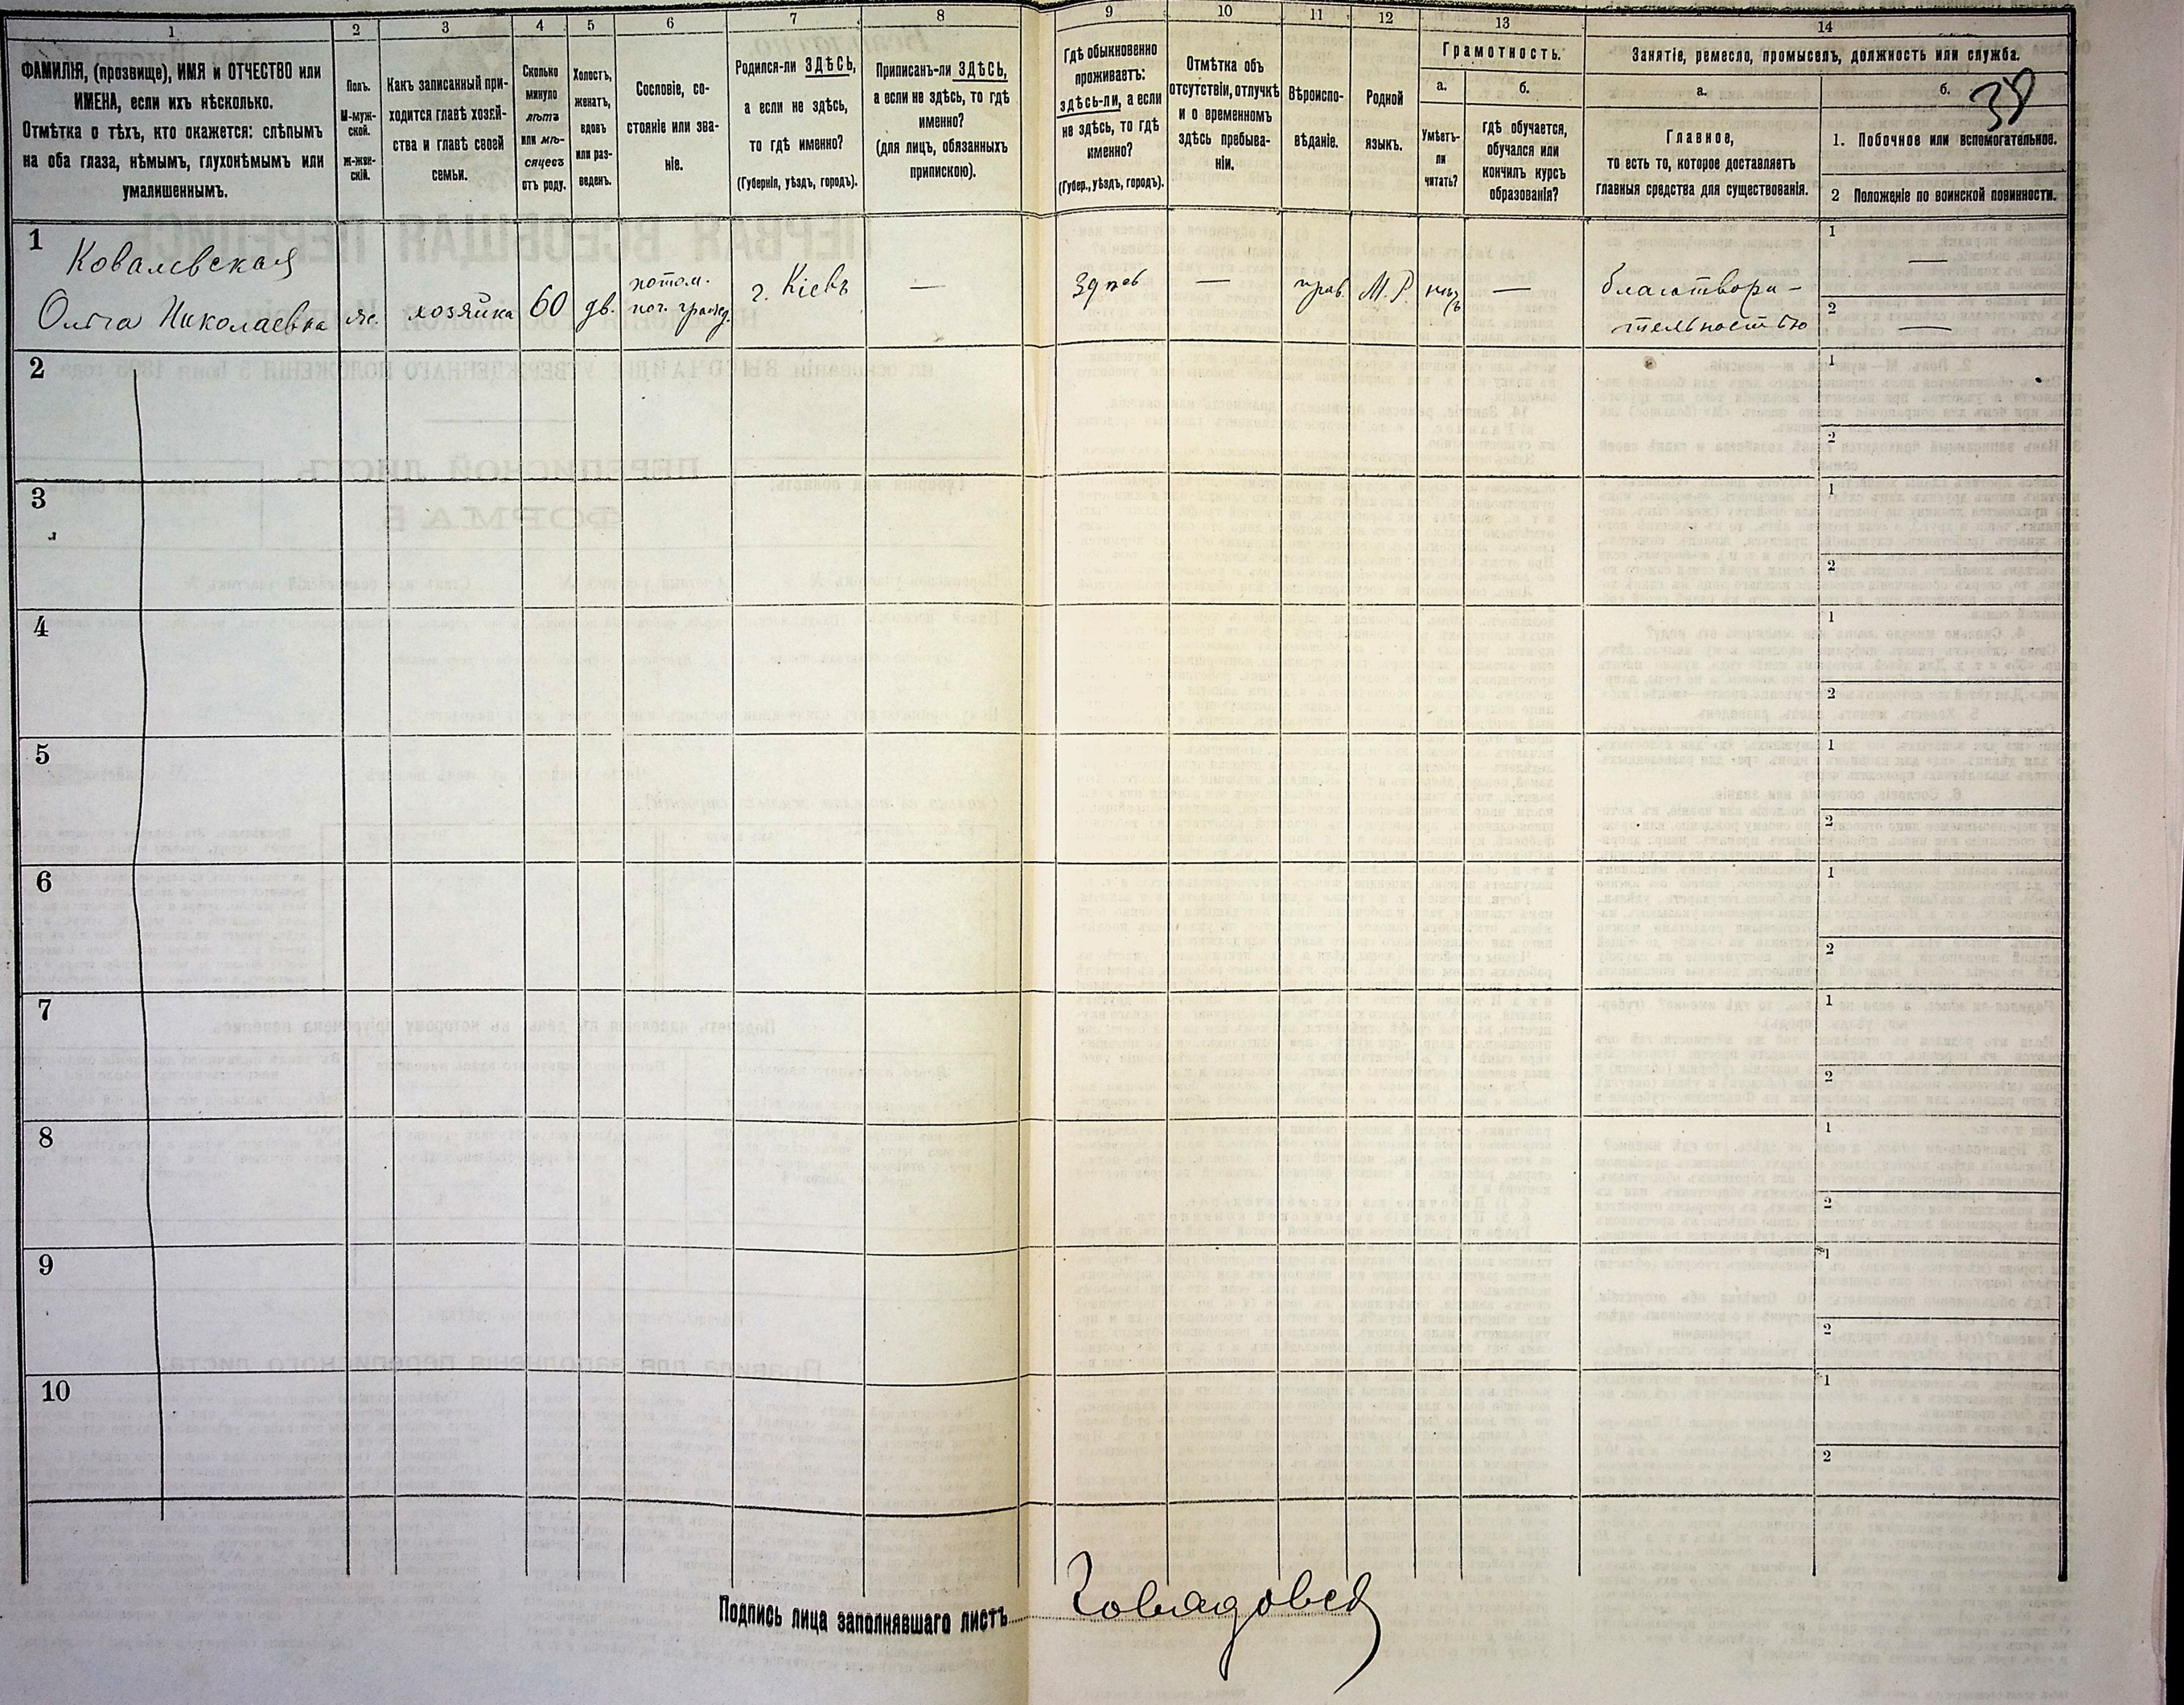 1 2 3 4 5 6 7 8 9 10 11 12 13 14
ФАМИЛІЯ, (прозвище), ИМЯ и ОТЧЕСТВО или
ИМЕНА, если ихъ нѣсколько.
Отмѣтка о тѣхъ, кто окажется: слѣпымъ
на оба глаза, нѣмымъ, глухонѣмымъ или
умалишеннымъ.
Полъ.
М-муж-
ской.
ж-жен-
скій.
Какъ записанный при-
ходится главѣ хозяй-
ства и главѣ своей
семьи.
Сколько
минуло
лѣтъ
или мѣ-
сяцевъ
отъ роду.
Холостъ,
женатъ,
вдовъ
или раз-
веденъ.
Сословіе, со-
стояніе или зва-
ніе.
Родился-ли ЗДѢСЬ,
а если не здѣсь,
то гдѣ именно?
(Губернія, уѣздъ, городъ).
Приписанъ-ли ЗДѢСЬ,
а если не здѣсь, то гдѣ
именно?
(для лицъ, обязанныхъ
припискою).
Гдѣ обыкновенно
проживаетъ:
здѣсь-ли, а если
не здѣсь, то гдѣ
именно?
(Губер., уѣздъ, городъ).
Отмѣтка объ
отсутствіи, отлучкѣ
и о временномъ
здѣсь пребыва-
ніи.
Вѣроиспо-
вѣданіе.
Родной
языкъ.
Грамотность.
а.
Умѣетъ-
ли
читать?
б.
гдѣ обучается,
обучался или
кончилъ курсъ
образованія?
Занятіе, ремесло, промыселъ, должность или служба.
а.
Главное,
то есть то, которое доставляетъ
главныя средства для существованія.
б.
38
1. Побочное или вспомогательное.
2 Положеніе по воинской повинности.
1
Ковалевская
Ольга Николаевна
же.
хозяйка
60
дв.
потом.
поч. гражд.
г. Кіевъ
—
—
прав.
М. Р.
—
благотвори-
тельностью
1 —
2 —
2
1
2
3
1
2
4
1
2
5
1
2
6
1
2
7
1
2
8
1
2
9
1
2
10
1
2
Подпись лица заполнявшаго листъ